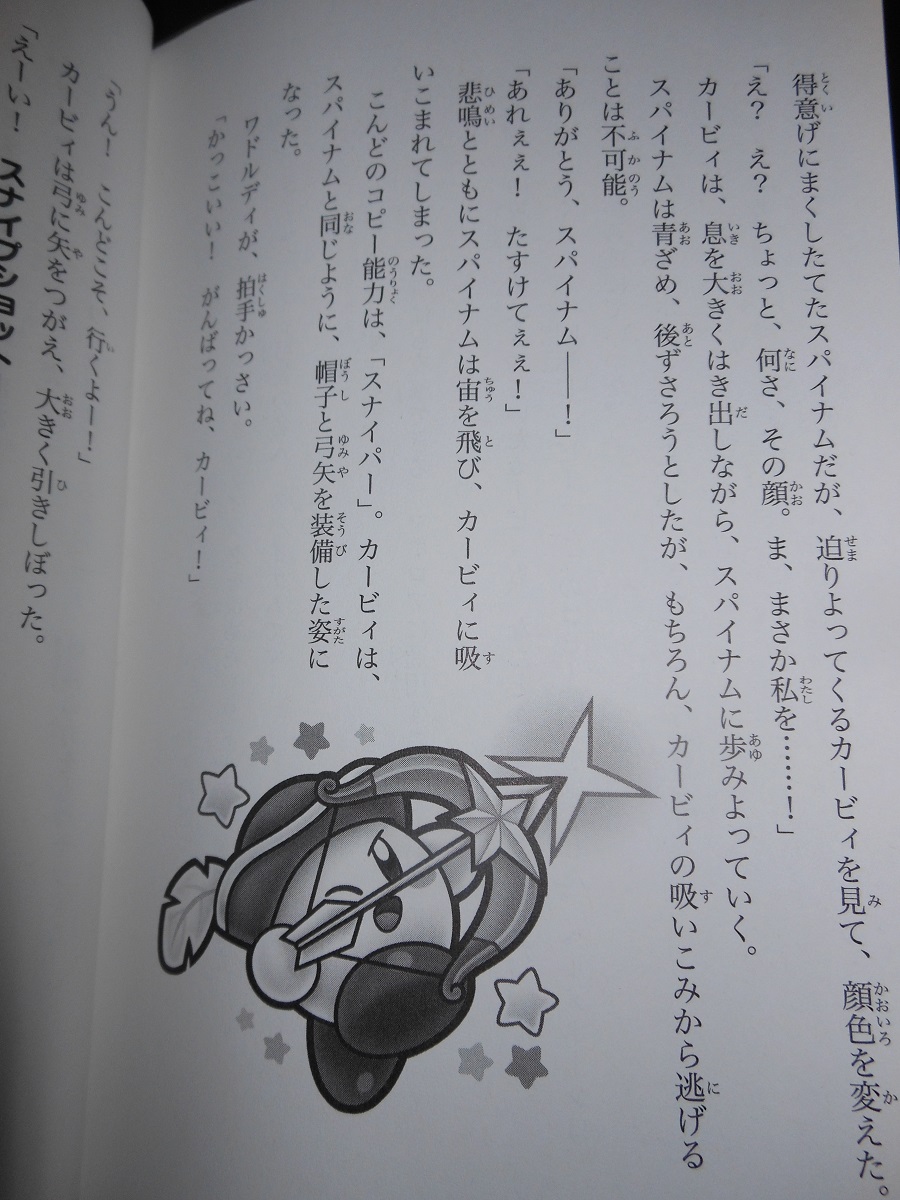 得意げにまくしたてたスパイナムだが、迫りよってくるカービィを見て、顔色を変えた。
「え？　え？　ちょっと、何さ、その顔。ま、まさか私を……！」
カービィは、息を大きくはき出しながら、スパイナムに歩みよっていく。
スパイナムは青ざめ、後ずさろうとしたが、もちろん、カービィの吸いこみから逃げる
ことは不可能。
「ありがとう、スパイナム――！」
「あれぇぇ！　たすけてぇぇ！」
悲鳴とともにスパイナムは宙を飛び、カービィに吸
いこまれてしまった。
こんどのコピー能力は、「スナイパー」。カービィは、
スパイナムと同じように、帽子と弓矢を装備した姿に
なった。
ワドルディが、拍手かっさい。
「かっこいい！　がんばってね、カービィ！」
「うん！　こんどこそ、行くよー！」
カービィは弓に矢をつがえ、大きく引きしぼった。
「えーい！　スナイプショット